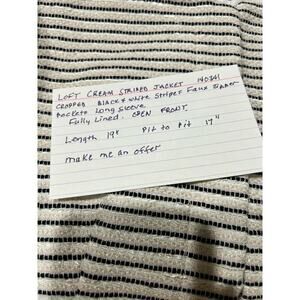 LOFT CREAM STRIPED JACKET 140241
CROPPED BLACK & white Stripes Faux zipper
Pockets Long Sleeve
Fully Lined. OPEN FRONT,
Length 19" Pit to Pit 17"
make me an offer